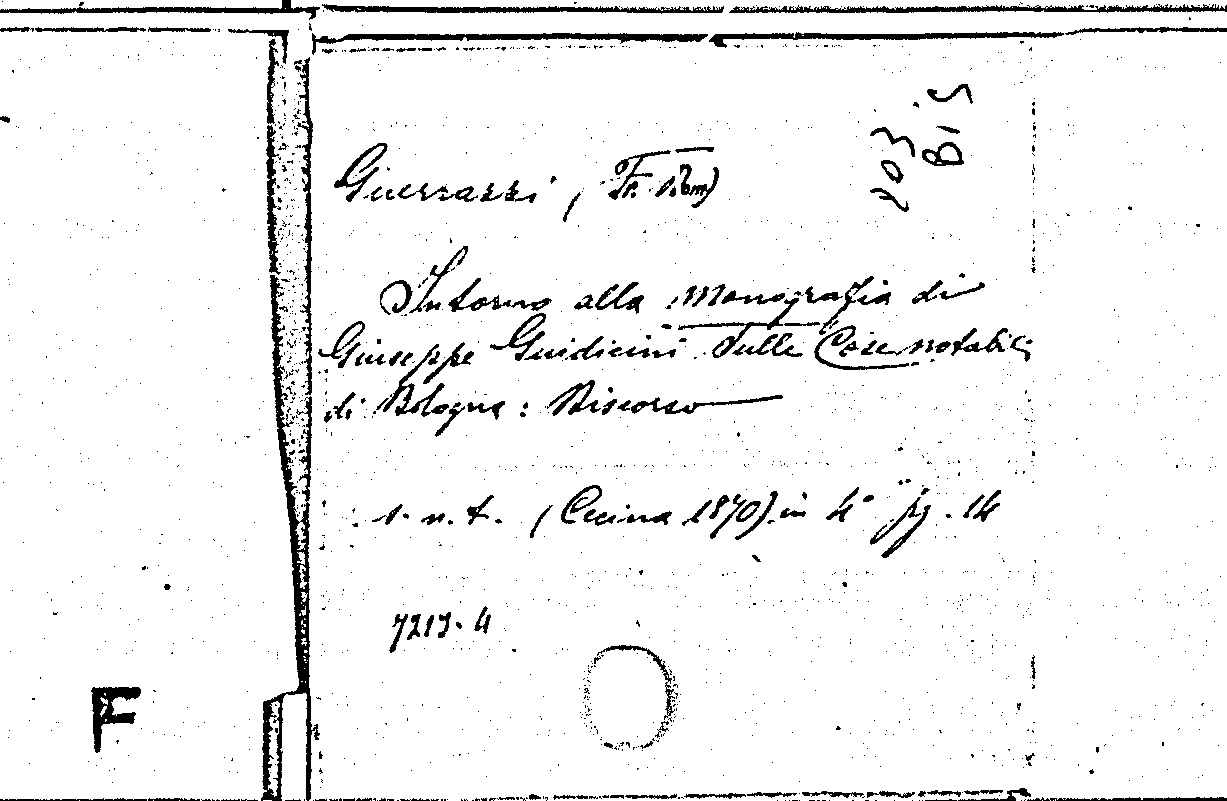 203
BIS
Guerrazzi, (Fr. Dom)
Intorno alla Monografia di
Giuseppe Guidicini sulle Cose notabili
di Bologna: Discorso
s. n. t. (Cecina 1870) in 4° pg. 14
7215. 4
F